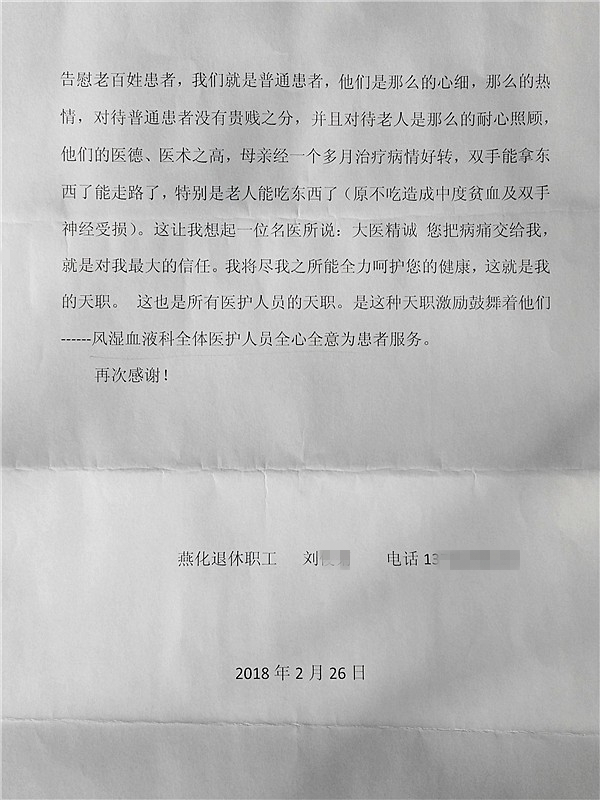 告慰老百姓患者，我们就是普通患者，他们是那么的心细，那么的热
情，对待普通患者没有贵贱之分，并且对待老人是那么的耐心照顾，
他们的医德、医术之高，母亲经一个多月治疗病情好转，双手能拿东
西了能走路了，特别是老人能吃东西了（原不吃造成中度贫血及双手
神经受损）。这让我想起一位名医所说：大医精诚 您把病痛交给我，
就是对我最大的信任。我将尽我之所能全力呵护您的健康，这就是我
的天职。 这也是所有医护人员的天职。是这种天职激励鼓舞着他们
------风湿血液科全体医护人员全心全意为患者服务。
再次感谢！
燕化退休职工 刘 电话 13
2018 年 2 月 26 日